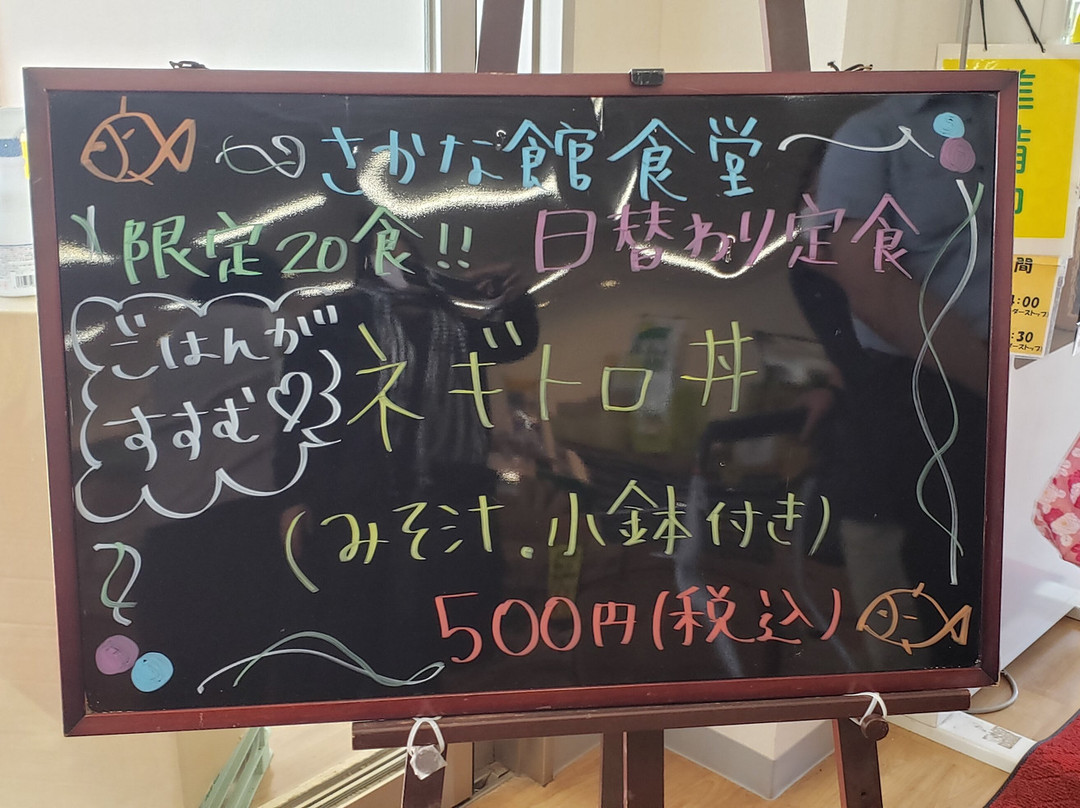 さかな館食堂
限定20食!! 日替わり定食
ごはんが
すすむ♡
ネギトロ丼
(みそ汁.小鉢付き)
500円(税込)
間
4:00
:30